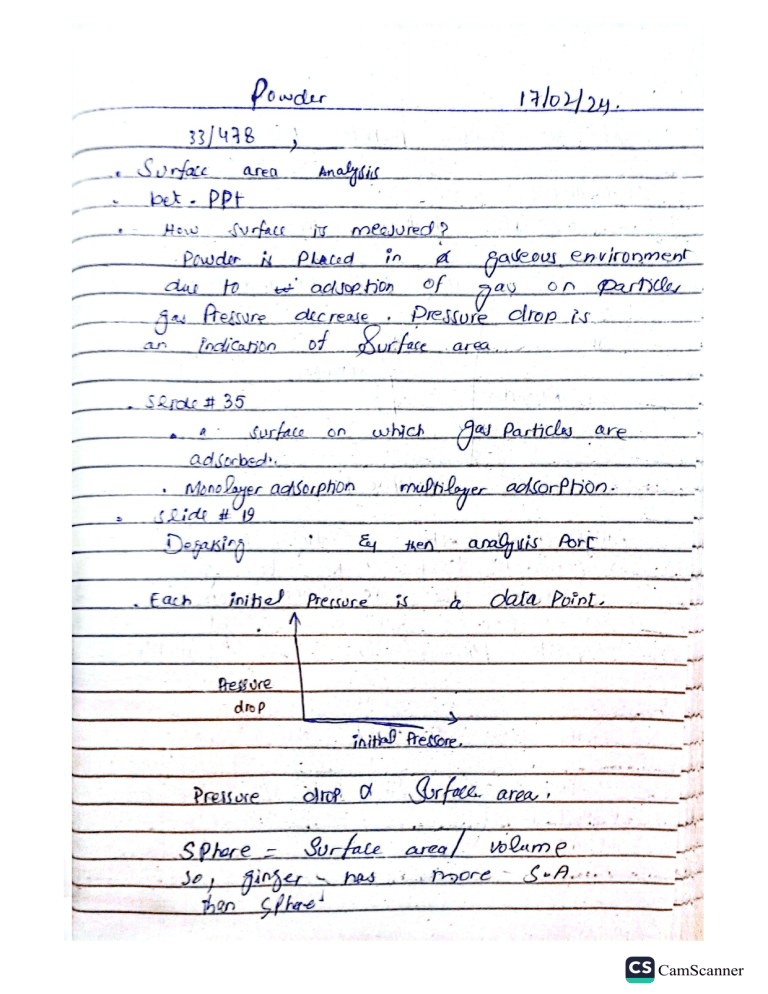 Powder 17/02/24.
33/478 ;
. Surface area Analysis
. bet - PPt
. How surface is measured?
Powder is Placed in a gaseous environment
due to adsoption of gas on particles
gas Pressure decrease. Pressure drop is
an indication of Surface area
. Slide # 35
. a surface on which gas Particles are
adsorbed.
. Monolayer adsorption multilayer adsorption.
. slide # 19
Degasing & then analysis Port
. Each initial Pressure is a data Point.
Pressure
drop
initial Pressore.
Pressure drop α Surface area.
Sphare = Surface area/ volume
so, ginger - has more S.A.
then Sphare
CS CamScanner